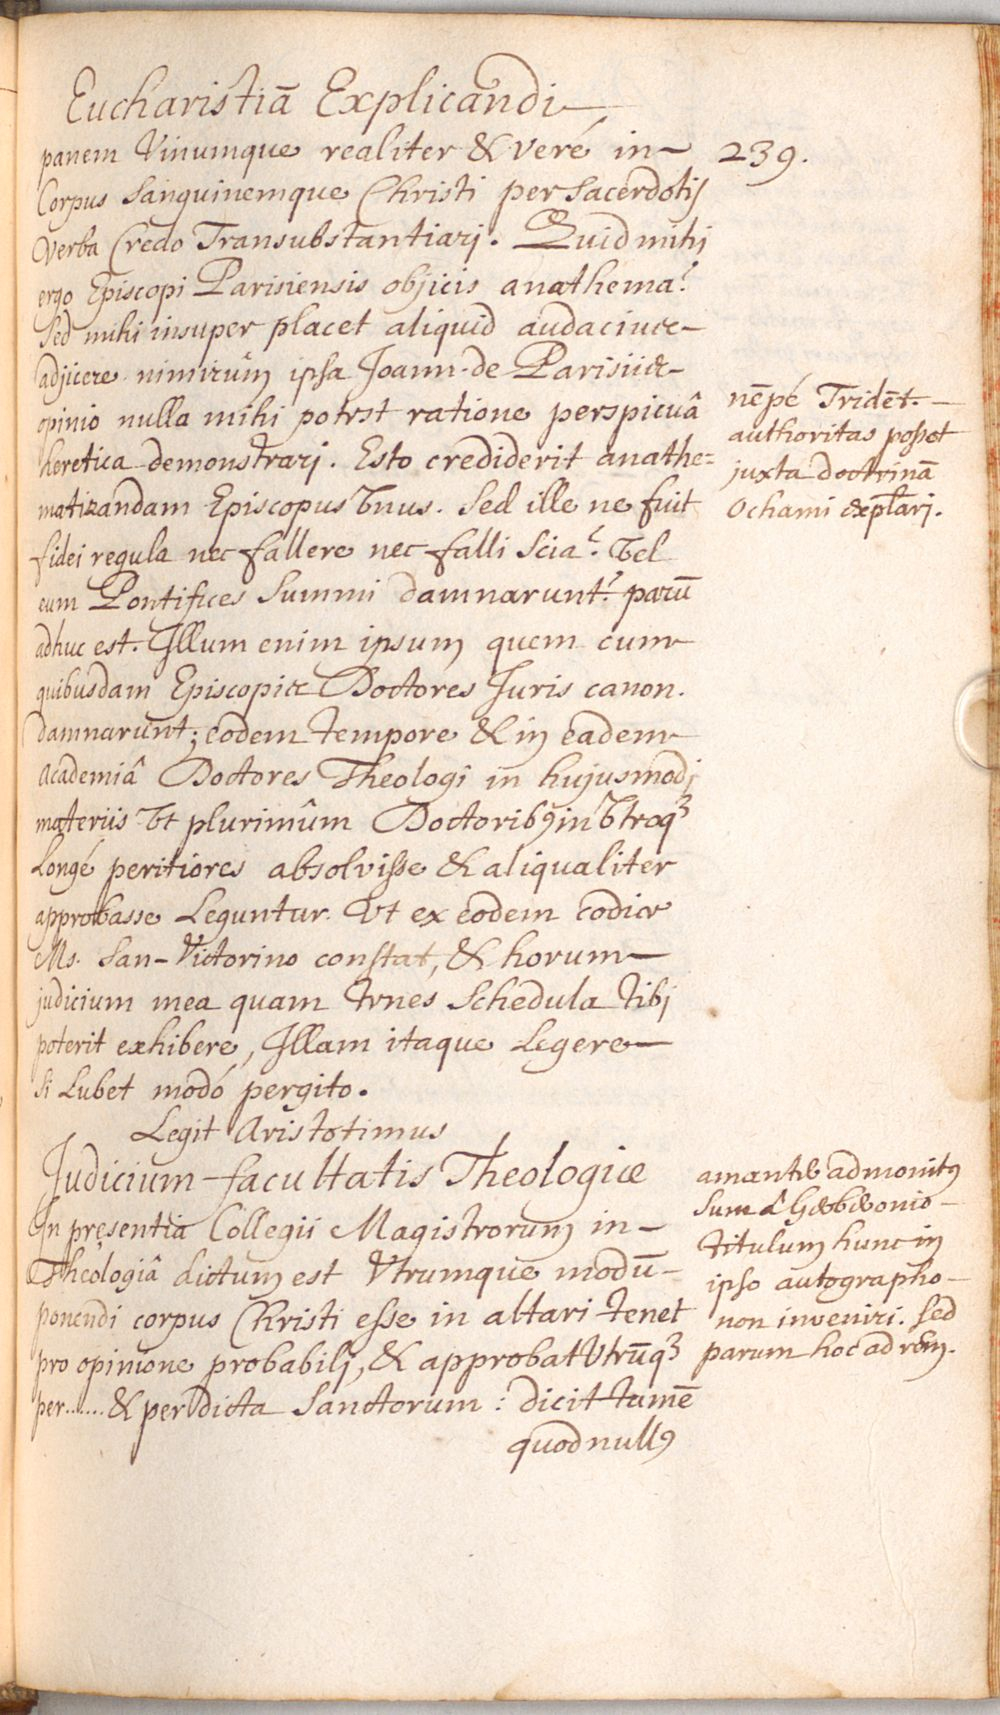 Eucharistiā Explicandi
239.
panem Vinumque realiter & veré in-
Corpus Sanguinemque Christi per Sacerdotij
Verba Credo Transubstantiarj. Quid mihi
ergo Episcopi Parisiensis objicis anathema?
Sed mihi insuper placet aliquid audacius-
adjicere nimirûm ipsa Joann. de Parisiis-
opinio nulla mihi potest ratione perspicuâ
heretica demonstrarj. Esto crediderit anathe=
matizandam Episcopus Vnus. Sed ille ne fuit
fidei regula nec fallere nec falli Scia? Vel
eum Pontifices Summi damnarunt? parū
adhuc est. Illum enim ipsum quem cum
quibusdam Episcopis Doctores Juris canon.
damnarunt; eodem tempore & in eadem
Academiâ Doctores Theologi in hujusmodj
materiis Vt plurimûm Doctorib9 in Vtroq3
Longé peritiores absolvisse & aliqualiter
approbasse Leguntur. Vt ex eodem codice
Ms. San-Victorino constat, & horum-
judicium mea quam tenes Schedula tibj
poterit exhibere, Illam itaque Legere-
Si Lubet modó pergito.
Legit Aristotimus
Judicium facultatis Theologiæ
In presentia Collegii Magistrorum in-
Theologiâ dictum est Vtrumque modū-
ponendi corpus Christi esse in altari tenet
pro opinione probabilj, & approbat Vtrūq3
per...... & per dicta Sanctorum: dicit tamē
quod null9
nēpé Tridēt.-
authoritas posset
juxta doctrinā
Ochami
admonit9
Sum â
titulum hunc in
ipso autographo-
non inveniri. Sed
parum hoc ad rem.